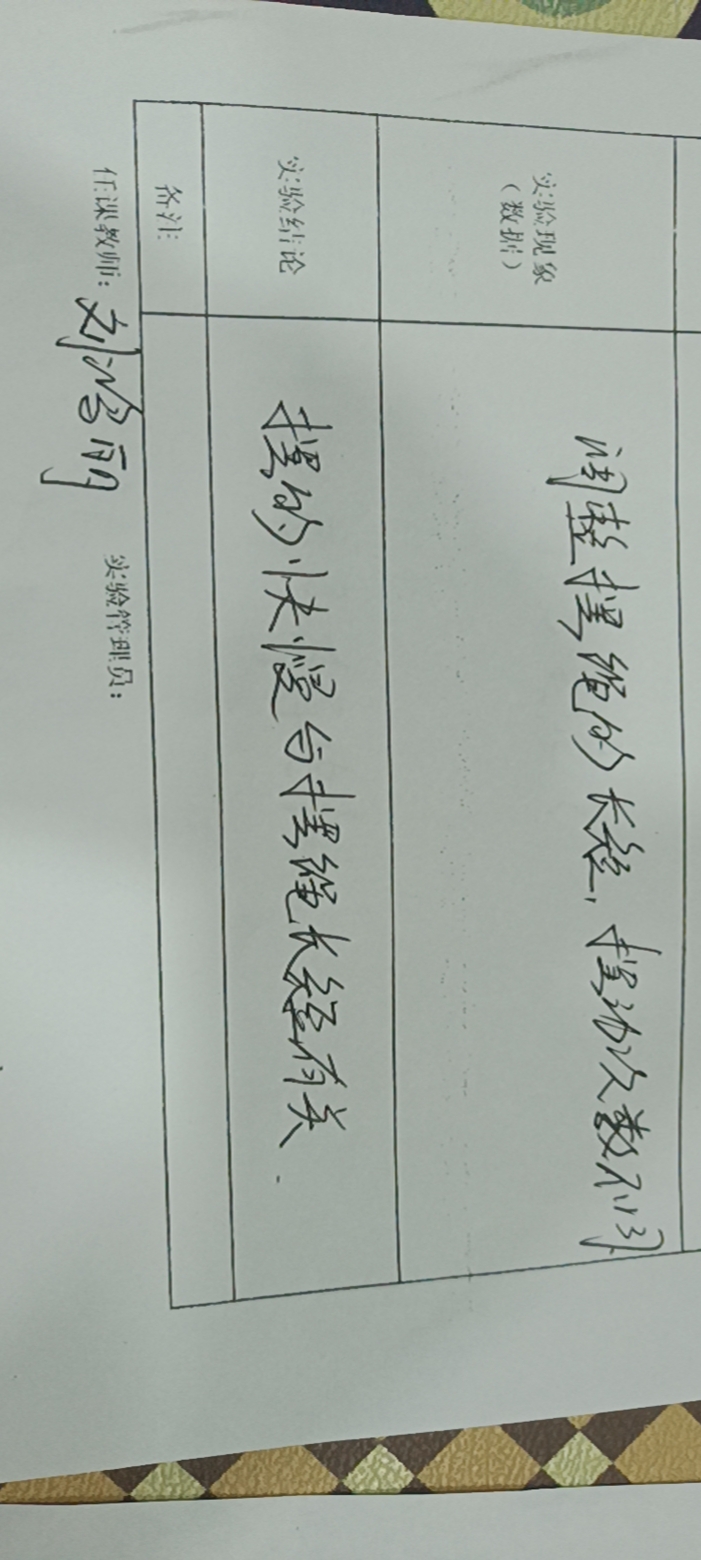 实验现象
（数据）
调整摆绳的长短，摆动次数不同
实验结论
摆的快慢与摆绳长短有关.
备注:
任课教师： 刘
实验管理员：